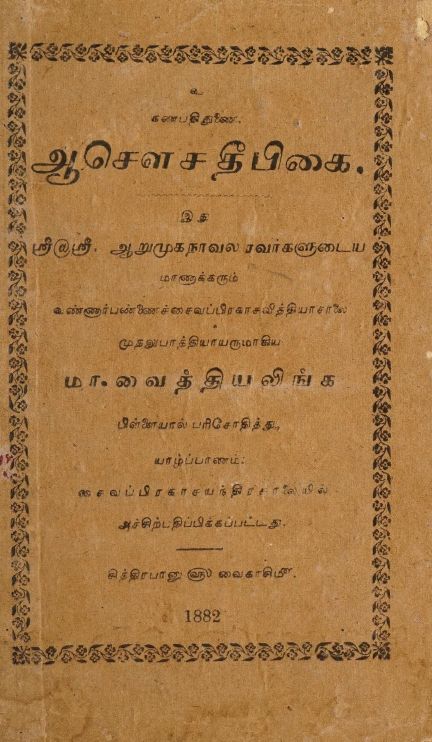 உ
கணபதிதுணை.
ஆசௌசதீபிகை.
இது
ஸ்ரீலஸ்ரீ. ஆறுமுகநாவலரவர்களுடைய
மாணாக்கரும்
வண்ணார்பண்ணைச்சைவப்பிரகாசவித்தியாசாலை
முதலுபாத்தியாயருமாகிய
மா. வைத்தியலிங்க
பிள்ளையால் பரிசோதித்து,
யாழ்ப்பாணம்:
சைவப்பிரகாசயந்திரசாலையில்
அச்சிற்பதிப்பிக்கப்பட்டது.
சித்திரபானு ௵ வைகாசி ௴.
1882